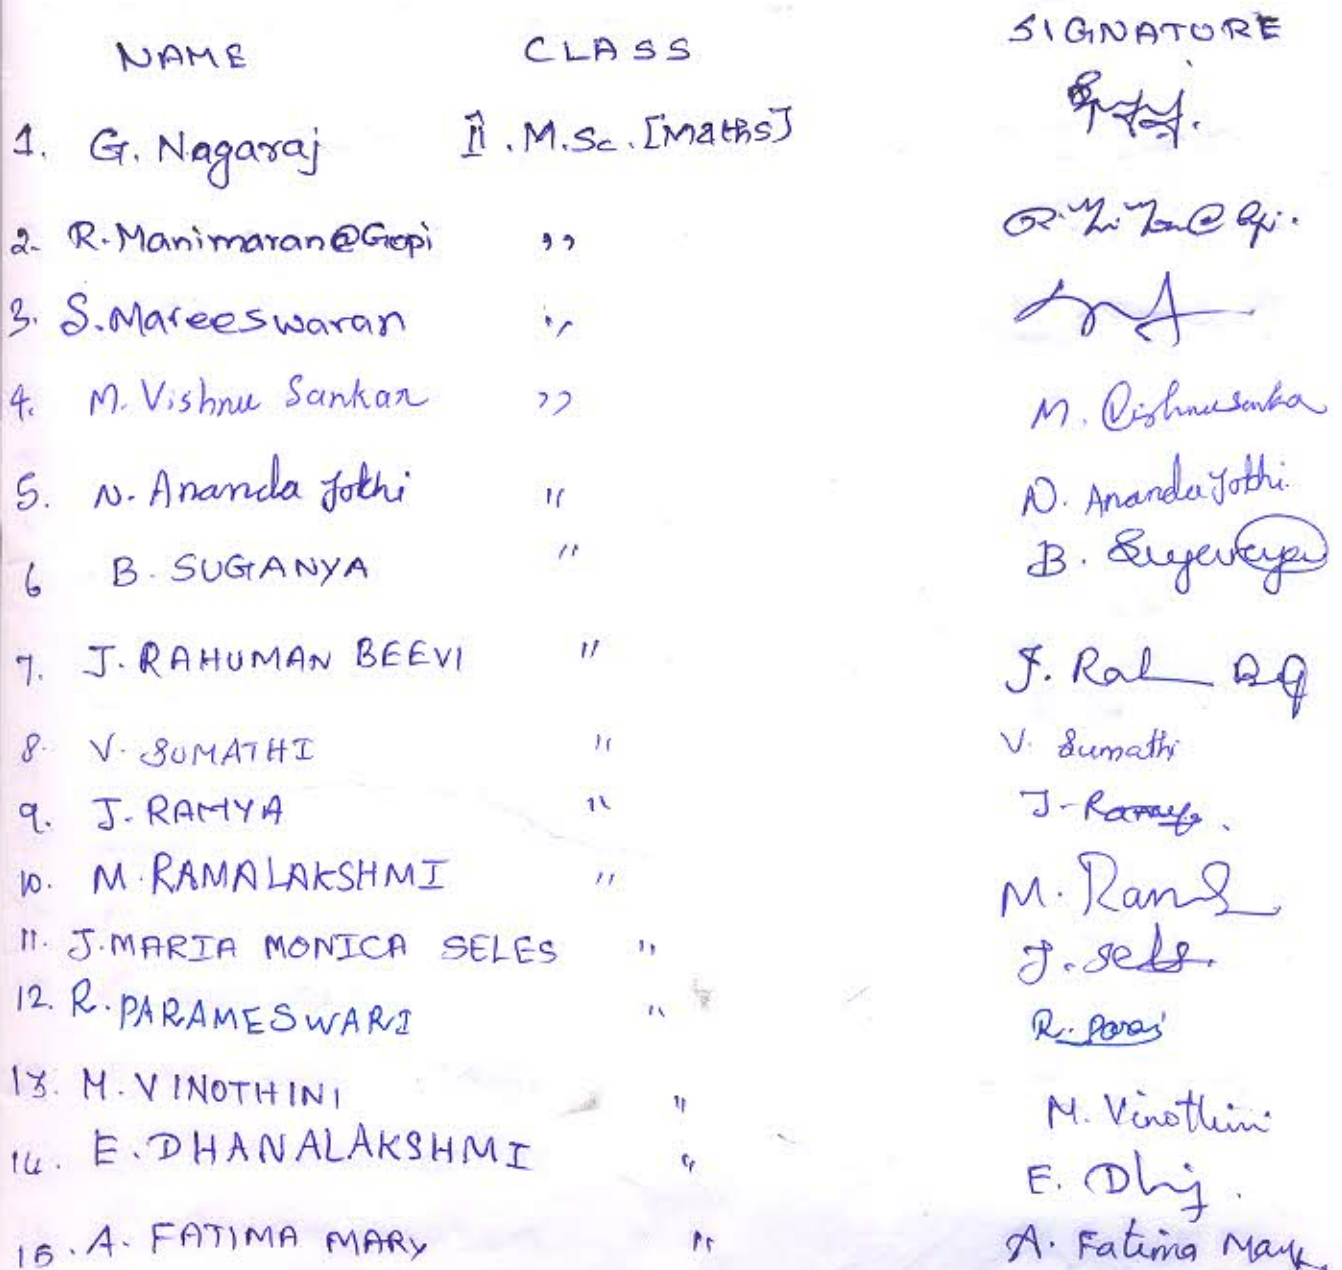 NAME CLASS SIGNATURE
1. G. Nagaraj II . M.Sc. [Maths]
2. R. Manimaran@Gopi ,, @
3. S. Mareeswaran ,,
4. M. Vishnu Sankar ,, M. Vishnusanka
5. N. Ananda Jothi " N. Ananda Jothi
6 B. SUGANYA " B.
7. J. RAHUMAN BEEVI " J. Rah
8. V. SUMATHI " V. Sumathi
9. J. RAMYA " J. Ramya.
10. M. RAMALAKSHMI " M. Ram
11. J. MARIA MONICA SELES " J. Seles.
12. R. PARAMESWARI " R.
13. M. VINOTHINI " M. Vinothini
14. E. DHANALAKSHMI " E.
15. A. FATIMA MARY " A. Fatima Mary